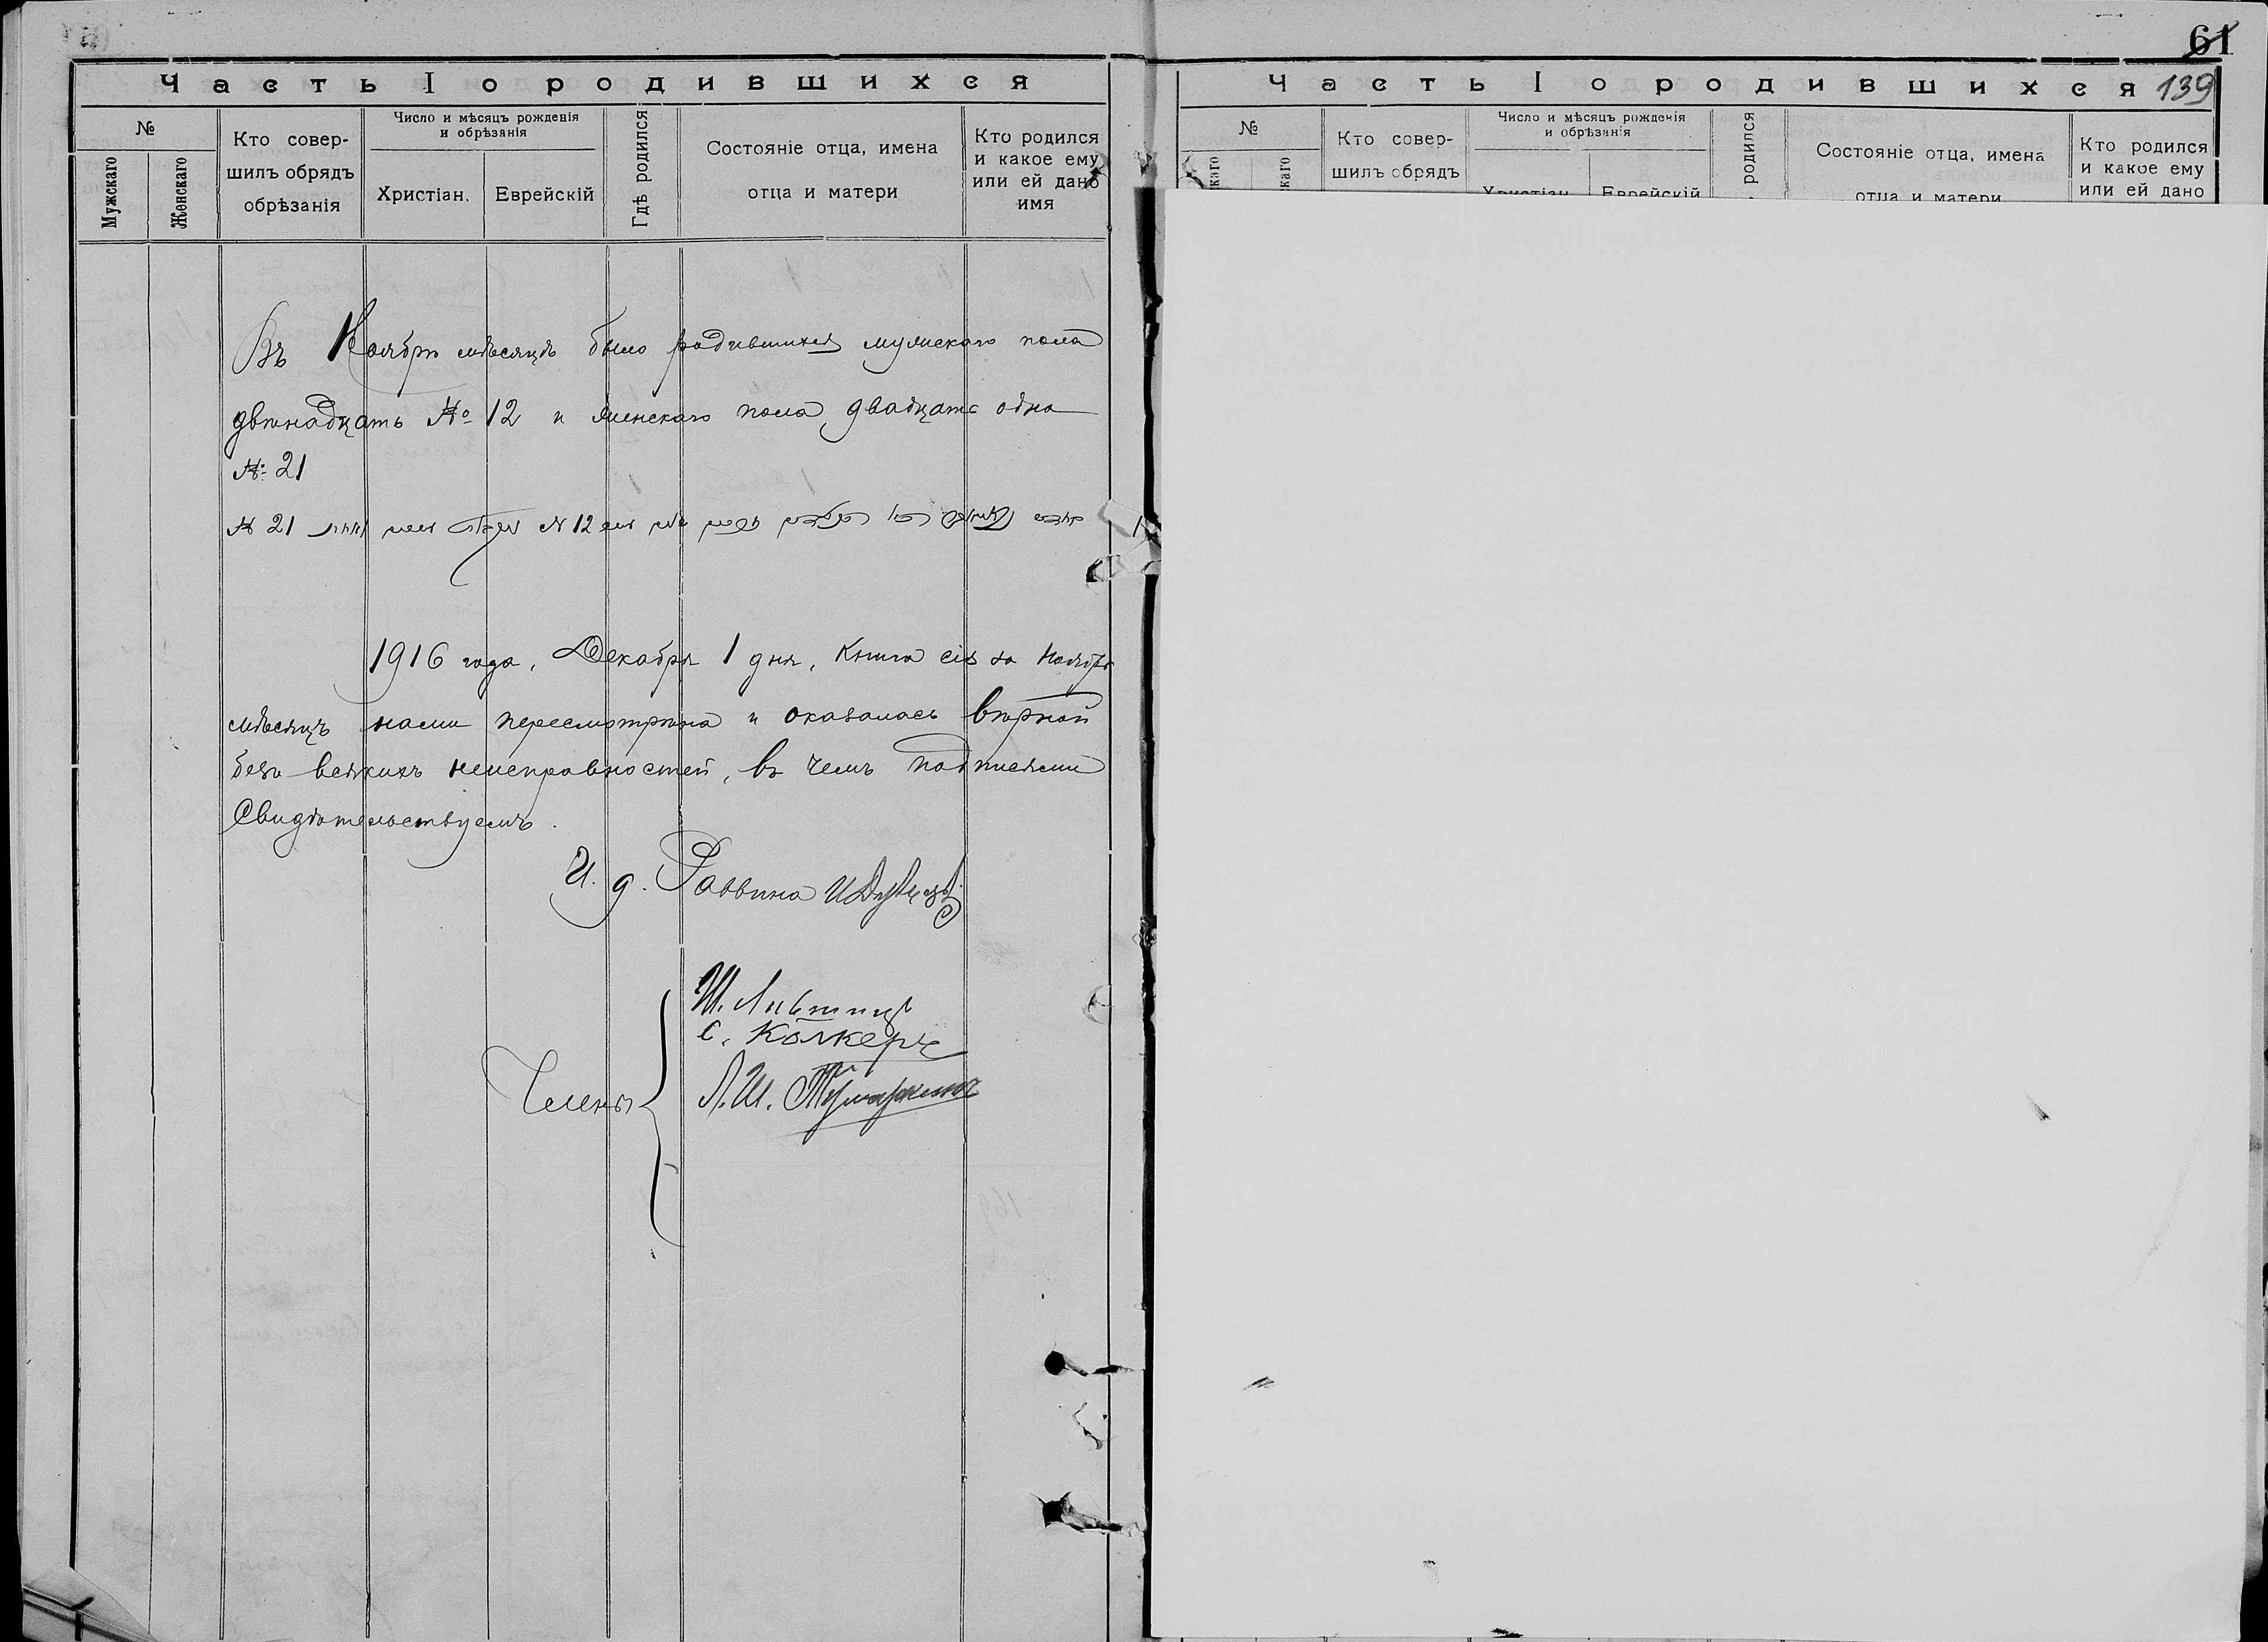 Часть I о родившихся
№
Мужскаго
Женскаго
Кто совер-
шилъ обрядъ
обрѣзанія
Число и мѣсяцъ рожденія
и обрѣзанія
Христіан.
Еврейскій
Гдѣ родился
Состояніе отца, имена
отца и матери
Кто родился
и какое ему
или ей дано
имя
Въ Ноябрѣ мѣсяцѣ было родившихся мужского пола
двѣнадцать № 12 и женскаго пола двадцать одна
№ 21
№ 21 N 12
1916 года, Декабря 1 дня, книга сія за Ноябрь
мѣсяцъ нами пересмотрѣна и оказалась вѣрной
безъ всякихъ неисправностей, въ чемъ подписями
Свидѣтельствуемъ.
И. д. Раввина
Члены
Ш. Лившицъ
С. Колкеръ
Л. Ш.
61
139
Часть I о родившихся
№
каго
каго
Кто совер-
шилъ обрядъ
Число и мѣсяцъ рожденія
и обрѣзанія
Христіан.
Еврейскій
родился
Состояніе отца, имена
отца и матери
Кто родился
и какое ему
или ей дано